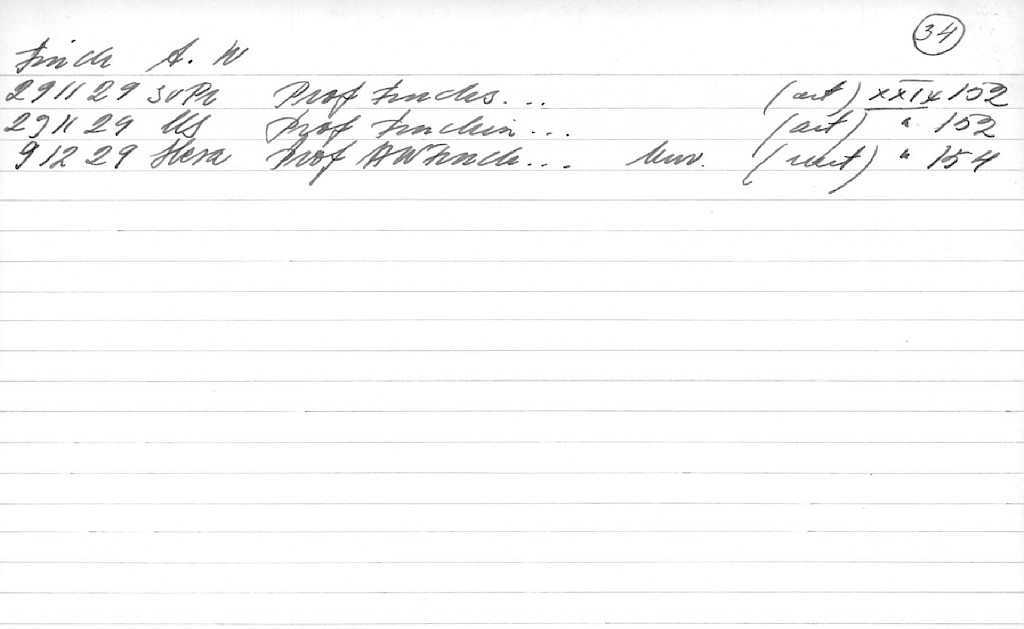 34
Finch A. W
29 11 29 SvPr Prof Finchs... (art) XXIX 152
29 11 29 US Prof Finchin... (art) " 152
9 12 29 Hesa Prof AW Finch... kuv. (uart) " 154